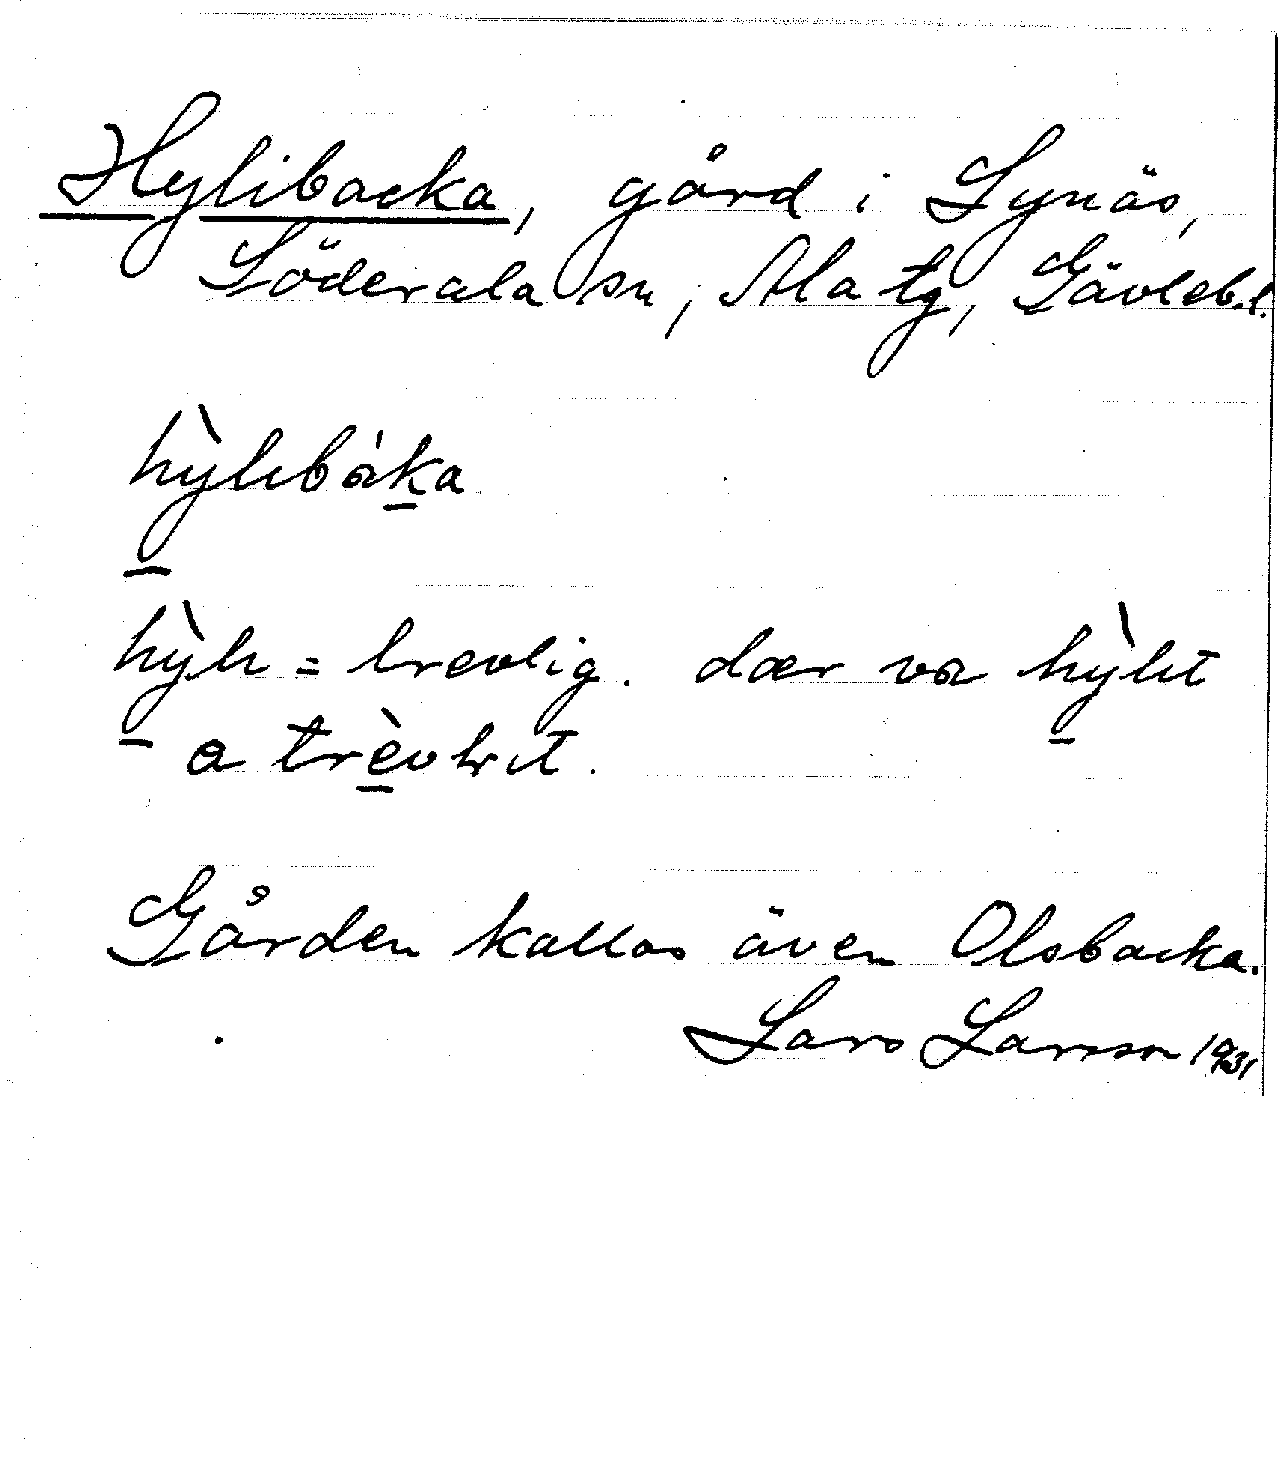 Hylibacka, gård i Lynäs,
Söderala sn, Ala tg, Gävleb.l.
hỳlıbàka
hỳlı = trevlig. dær va hỳlıt
a trèvlıt.
Gården kallas även Olsbacka.
Lars Larsson 1931